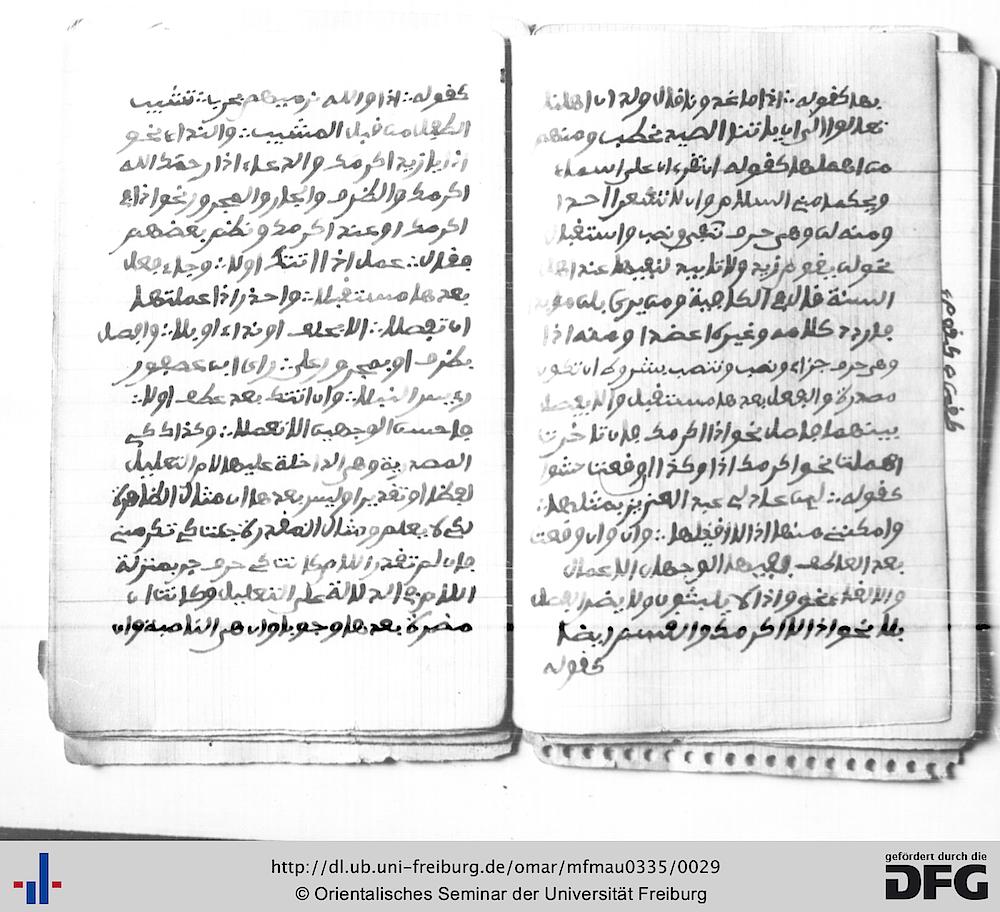 بها كقوله: اذا ما غدونا قال ولدان اهلنا
تعالوا الى ان ياتنا الصيد نحطب ومنهم
من اهملها كقوله ان تقرءان على اسماء
ويحكما مني السلام وان لا تشعرا احدا
ومنه لن وهي حرف نفي ونصب واستقبال
نحو لن يقوم زيد ولا تابيد لنفيها عند اهل
السنة قال في الكافية ومن يرى بلن مؤبدا
فاردد كلامه وغيره اعضدا ومنه اذا
وهي حرف جزاء ونصب وتنصب بشروط ان تكون
مصدرة والفعل بعدها مستقبل ولا يفصل
بينهما فاصل نحو اذا اكرمك فان تاخرت
اهملت نحو اكرمك اذا وكذا ان وقعت حشوا
كقوله: لئن عاد لي عبد العزيز بمثلها:
وامكنني منها اذا لا اقيلها: وان وقعت
بعد العاطف ففيها الوجهان الاعمال
والالغاء نحو واذا لا يلبثون ولا يضر الفصل
بلا نحو اذا لا اكرمك والقسم ايضا
كقوله
كقوله: اذا والله نرميهم بحرب: تشيب
الطفل من قبل المشيب: والنداء نحو
اذا يا زيد اكرمك والدعاء اذا رحمك الله
اكرمك والظرف والجار والمجرور نحو اذا
اكرمك او عندك اكرمك ونظم بعضهم
فقال: عمل اذا اذا اتتك اولا: وجاء فعل
بعدها مستقبلا: واحذر اذا عملتها
ان تفصلا: الا بحلف او نداء او بلا: وافصل
بظرف او بمجرور على: راي ابن عصفور
رءيس النبلا: وان اتتك بعد عطف اولا:
فاحسن الوجهين الا تعملا: وكذاك كي
المصدرية وهي الداخلة عليها لام التعليل
لفظا او تقديرا وليس بعدها ان مثال الظاهرة
لكي لا يعلم ومثال المقدرة جئت كي تكرمني
فان لم تقدر اللام كانت كي حرف جر بمنزلة
اللام في الدلالة على التعليل وكانت ان
مضمرة بعدها وجوبا وان هي الناصبة وان
http://dl.ub.uni-freiburg.de/omar/mfmau0335/0029
© Orientalisches Seminar der Universität Freiburg
gefördert durch die
DFG